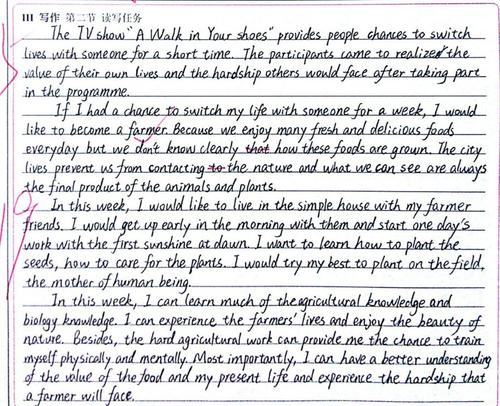 III 写作 第二节 读写任务
The TV show "A Walk in Your shoes" provides people chances to switch
lives with someone for a short time. The participants came to realize the
value of their own lives and the hardship others would face after taking part
in the programme.
If I had a chance to switch my life with someone for a week, I would
like to become a farmer. Because we enjoy many fresh and delicious foods
everyday but we don't know clearly that how these foods are grown. The city
lives prevent us from contacting to the nature and what we can see are always
the final product of the animals and plants.
In this week, I would like to live in the simple house with my farmer
friends. I would get up early in the morning with them and start one day's
work with the first sunshine at dawn. I want to learn how to plant the
seeds, how to care for the plants. I would try my best to plant on the field,
the mother of human being.
In this week, I can learn much of the agricultural knowledge and
biology knowledge. I can experience the farmers' lives and enjoy the beauty of
nature. Besides, the hard agricultural work can provide me the chance to train
myself physically and mentally. Most importantly, I can have a better understanding
of the value of the food and my present life and experience the hardship that
a farmer will face.